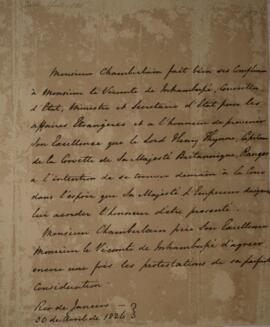 Monsieur Chamberlain fait bien ses Complim
à Monsieur le Vicomte de Inhambupé, Conseiller
d'Etat, Ministre et Secretaire d'Etat pour les
affaires Etrangères et a l'honneur de prevenir
Son Excellence que le Lord Henry Thynne, Capitaine
de la Corvette de Sa Majesté Britannique, Ranger
a l'intention de se trouver demain à la Cour
dans l'espoir que Sa Majesté l'Empereur daigne
lui accorder l'honneur d'etre presenté.
Monsieur Chamberlain prie Son Excellence
Monsieur le Vicomte de Inhambupé d'agreer
encore une fois les protestations de sa parfaite
Consideration
Rio de Janeiro
30 de Avril de 1826